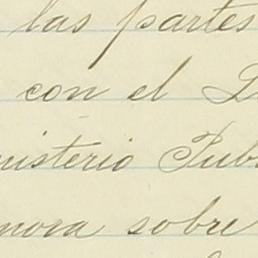 las partes
con el
nisterio Pub
mora sobre